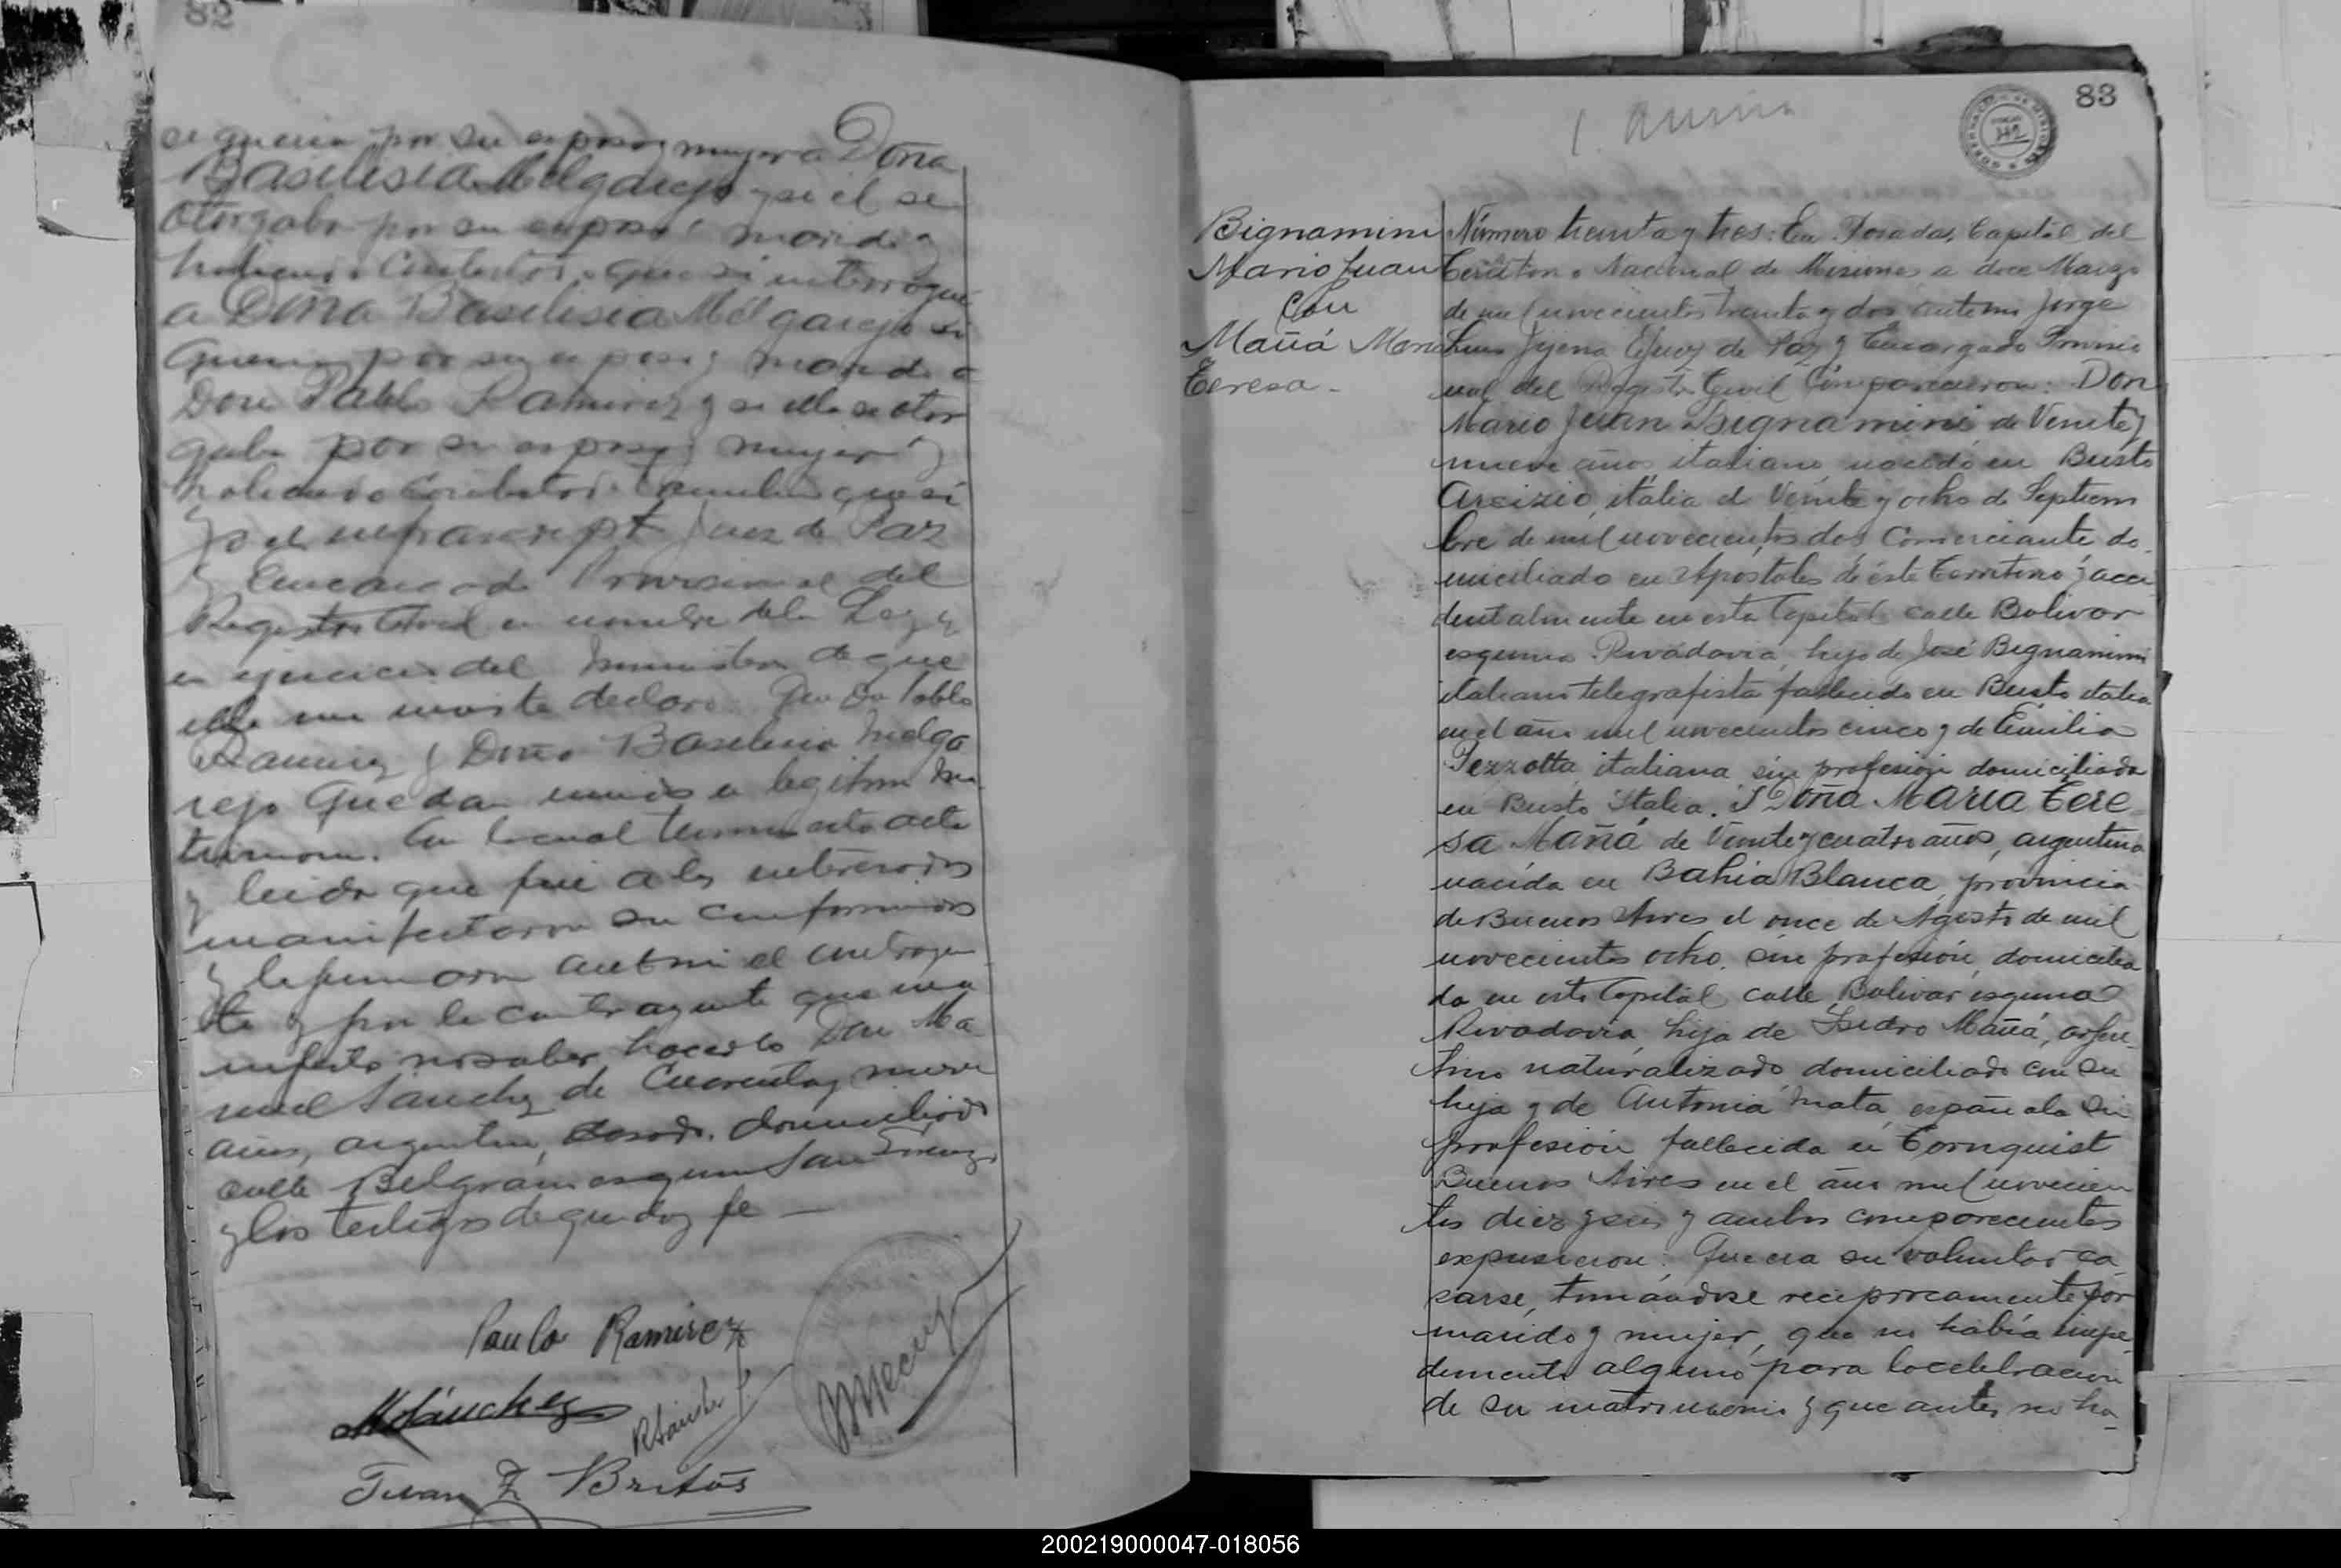 82
se queria por su esposa y mujer a Doña
Basilisia Melgarejo y si él se
otorgaba por su esposo y marido y
habiendo contestado que si interrogué
a Doña Basilisia Melgarejo si
queria por su esposo y marido a
Don Pablo Ramirez y si ella se otor
gaba por su esposa y mujer y
habiendo contestado tambien que si
yo el infrascripto Juez de Paz
y Encargado Provisional del
Registro Civil en nombre de la Ley y
en ejercicio del ministerio de que
ella me inviste declaro: Que Don Pablo
Ramirez y Doña Basilisia Melga
rejo quedan unidos en legitimo ma
trimonio. Con lo cual termino esta acta
y leida que fue a los interesados
manifestaron su conformidad
y la firmaron ante mi el contrayen
te y por la contrayente que ma
nifestó no saber hacerlo Don Ma
nuel Sanchez de cuarenta y nueve
años, argentino, casado, domiciliado
calle Belgrano esquina San Lorenzo
y los testigos de que doy fe —
Paulo Ramirez
MSánchez
Juan Z Britos
83
Bignamini
Mario Juan
Con
Mañá Maria
Teresa -
Número treinta y tres: En Posadas, Capital del
Territorio Nacional de Misiones a doce Marzo
de mil novecientos treinta y dos ante mi Jorge
Luis Juez de Paz y Encargado Provisio
nal del Registro Civil Comparecieron: Don
Mario Juan Bignamini de Veinte y
nueve años, italiano, nacido en Busto
Arcizio, italia el Veinte y ocho de Septiem
bre de mil novecientos dos Comerciante do
miciliado en Apostoles de éste Territorio y acci
dentalmente en esta Capital calle Bolivar
esquina Rivadavia, hijo de José Bignamini
italiano telegrafista fallecido en Busto italia
en el año mil novecientos cinco y de Emilia
Pezzotta italiana sin profesion domiciliada
en Busto Italia. Y Doña Maria Tere
sa Mañá de Veinte y cuatro años, argentina
nacida en Bahia Blanca, provincia
de Buenos Aires el once de Agosto de mil
novecientos ocho. sin profesión, domicilia
da en esta Capital calle Bolivar esquina
Rivadavia, hija de Isidro Mañá, argen
tino naturalizado domiciliado con su
hija y de Antonia Mata, española sin
profesión fallecida en Tornquist
Buenos Aires en el año mil novecien
tos diez y seis y ambos comparecientes
expusieron: Que era su voluntad ca
sarse, tomandose reciprocamente por
marido y mujer, que no habia impe
dimento alguno para la celebracion
de su matrimonio y que antes no ha-
200219000047-018056